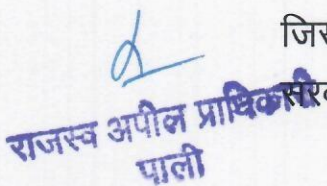 जिस
सरक
राजस्व अपील प्राधिकारी
पाली